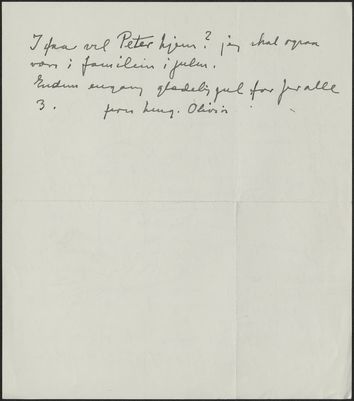 I faar vel Peter hjem? jeg skal ogsaa
være i familien i julen.
Endnu engang glædelig jul for jer alle
3. fern Olivia